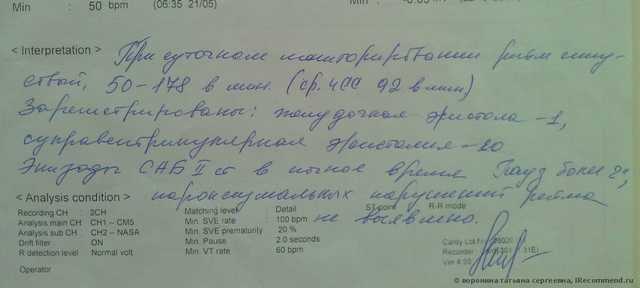 Min : 50 bpm (06:35 21/05)
Min :
< Interpretation > При суточном мониторировании ритм сину-
совый, 50-178 в мин. (ср. ЧСС 92 в мин)
Зарегистрированы: желудочная э-систола -1,
суправентрикулярная э-систолия -20
Эпизоды САБ II ст в ночное время Пауз более 2",
пароксизмальных нарушений ритма
не выявлено.
< Analysis condition >
Recording CH 2CH
Analysis main CH CH1 -- CM5
Analysis sub CH CH2 -- NASA
Drift filter ON
R detection level Normal volt
Operator
Matching level
Min. SVE rate
Min. SVE prematurity
Min. Pause
Min. VT rate
Detail
100 bpm
20 %
2.0 seconds
60 bpm
ST point
R-R mode
Cardy Lot.No
Recorder
Ver 4.00
© воронина татьяна сергеевна, IRecommend.ru